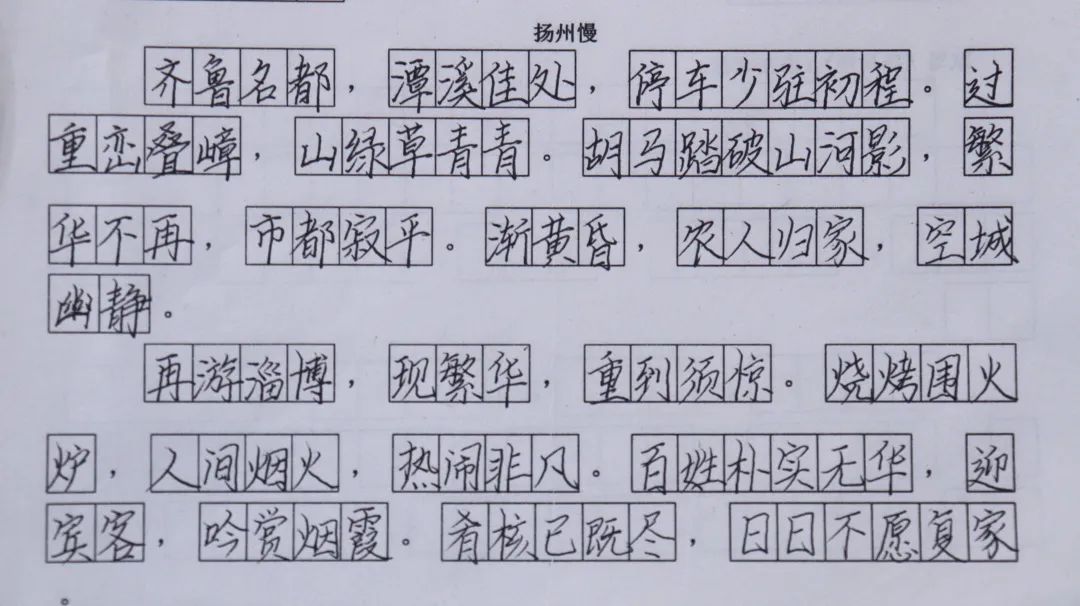 扬州慢
齐鲁名都，潭溪佳处，停车少驻初程。过
重峦叠嶂，山绿草青青。胡马踏破山河影，繁
华不再，市都寂平。渐黄昏，农人归家，空城
幽静。
再游淄博，现繁华，重到须惊。烧烤围火
炉，人间烟火，热闹非凡。百姓朴实无华，迎
宾客，吟赏烟霞。肴核已既尽，日日不愿复家
。